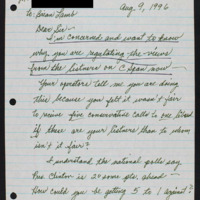 Aug 9, 1996
to: Brian Lamb
Dear Sir:
I'm concerned and want to know
why you are regulating the views
from the listeners on CSpan now.
Your operators tell me you are doing
this because you felt it wasn't fair
to receive five conservative calls to one liberal
If those are your listeners then to whom
isn't it fair?
I understand the national polls say
Mr Clinton is 20 some pts. ahead
How could you be getting 5 to 1 against?